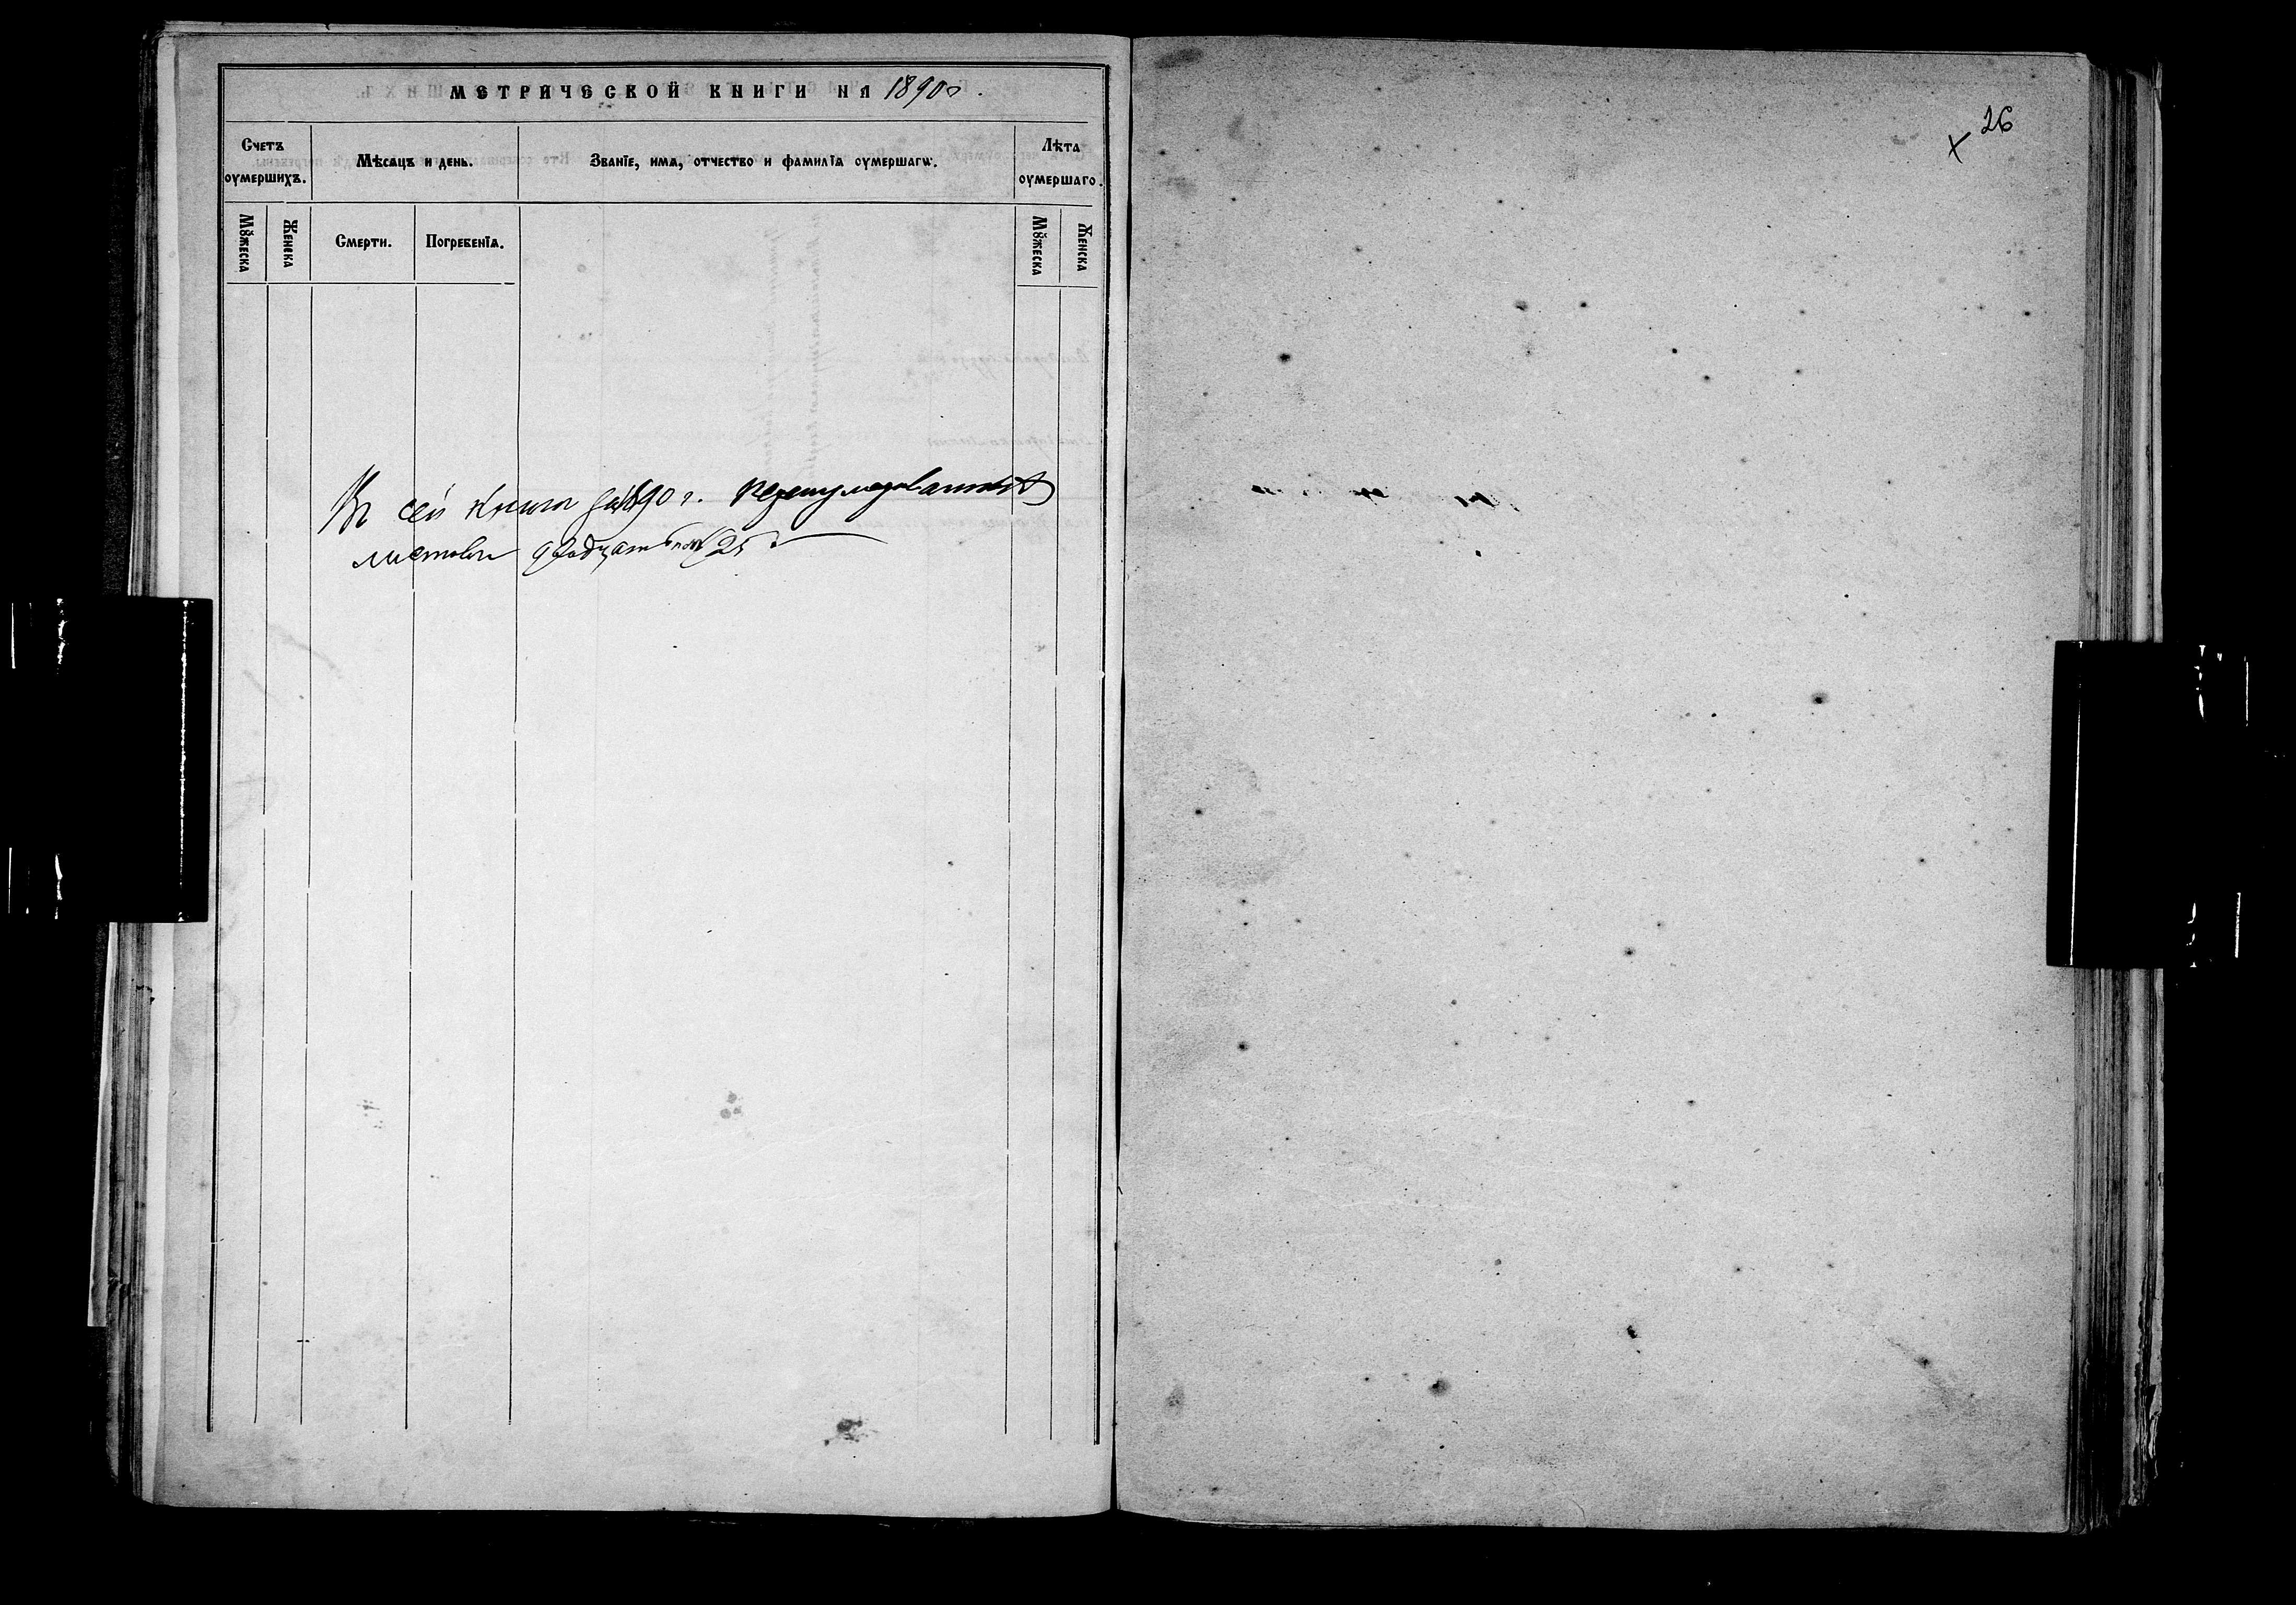 МЕТРИЧЕСКОЙ КНИГИ НА 1890 г.
Счетъ оумершихъ.
Мѣсяцъ и день.
Званїе, имя, отчество и фамилїя оумершагѡ.
Лѣта оумершаго.
Мꙋжеска
Женска
Смерти.
Погребенїя.
Мꙋжеска
Женска
Въ сей книги за 1890 г. перенумерованныхъ
листовъ двадцать пять (25).
26